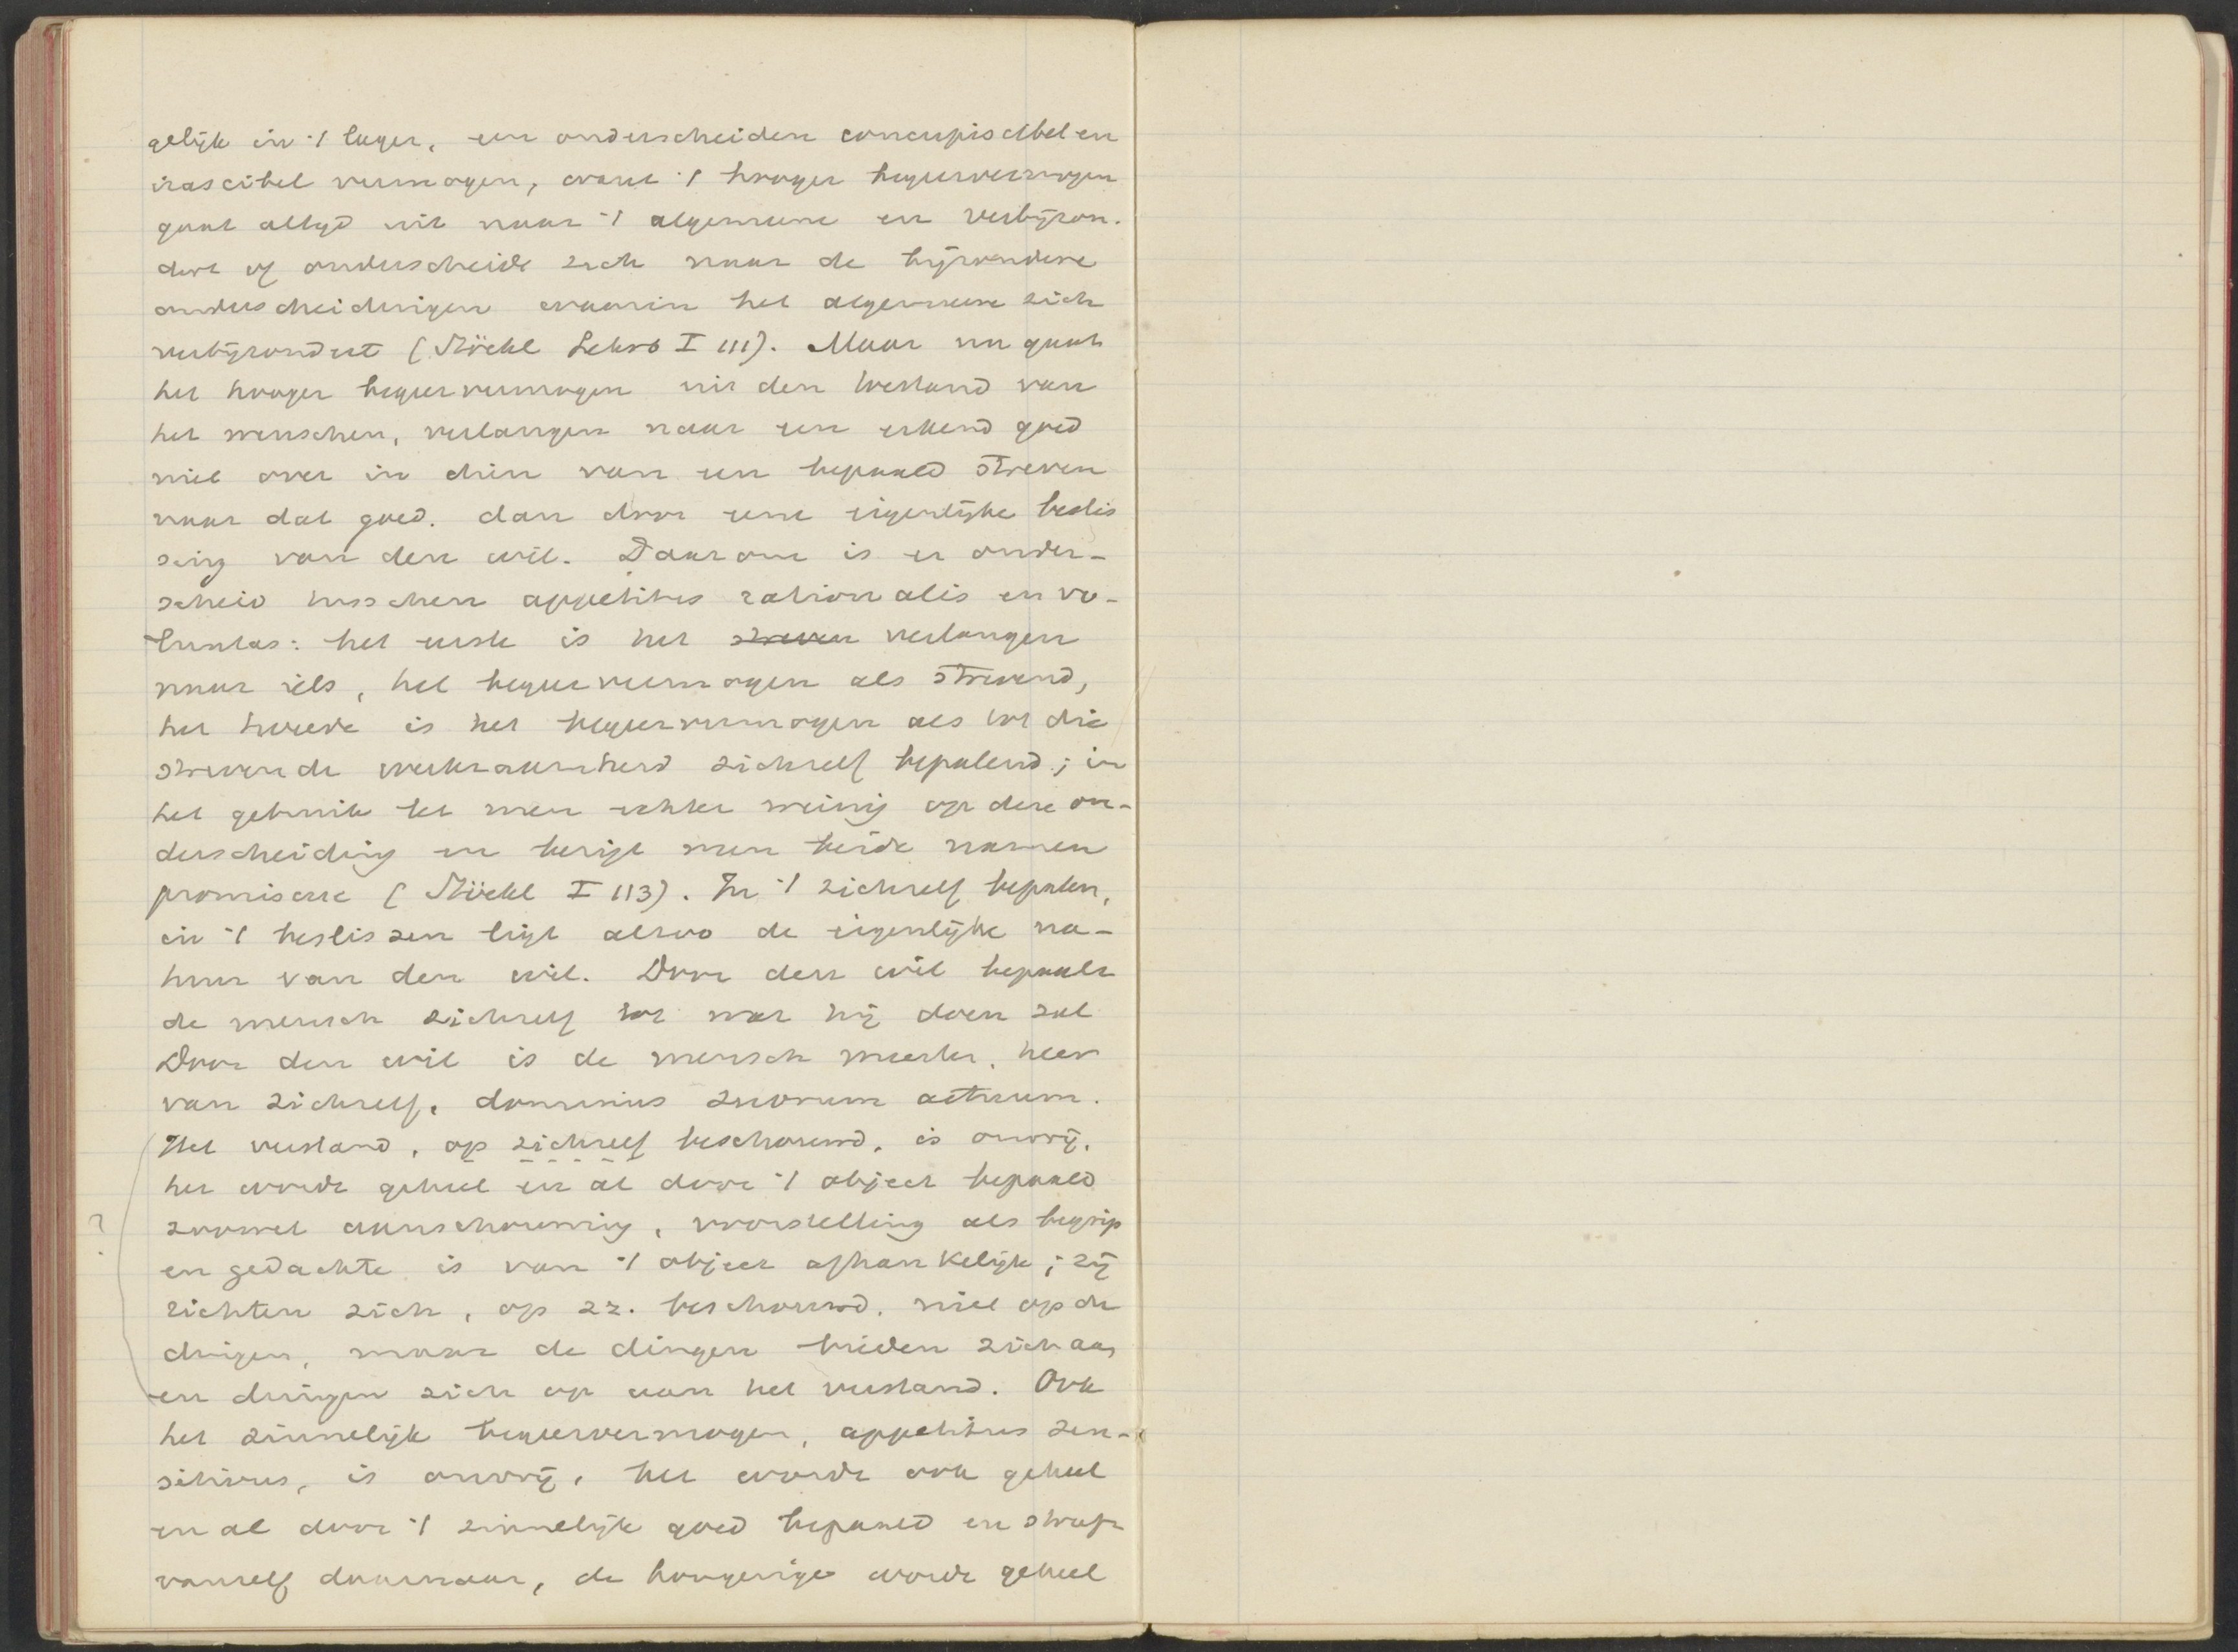 gelijk in 't lager, een onderscheiden concupiscibel en
irascibel vermogen, want 't hooger begeervermogen
gaat altijd uit naar 't algemeene en verbijzon-
dert of onderscheidt zich naar de bijzondere
onderscheidingen waarin het algemeene zich
verbijzondert (Stöckl Lehrb I 111). Maar nu gaat
het hooger begeervermogen uit den toestand van
het wenschen, verlangen naar een erkend goed
niet over in dien van een bepaald streven
naar dat goed. dan door eene eigenlijke beslis
sing van den wil. Daarom is er onder-
scheid tusschen appetitus rationalis en vo-
luntas: het eerste is het streven verlangen
naar iets, het begeervermogen als strevend,
het tweede is het begeervermogen als tot die
strevende werkzaamheid zichzelf bepalend; in
het gebruik let men echter weinig op deze on-
derscheiding en bezigt men beide namen
promiscue (Stöckl I 113). In 't zichzelf bepalen,
in 't beslissen ligt alzoo de eigenlijke na-
tuur van den wil. Door den wil bepaalt
de mensch zichzelf tot wat hij doen zal
Door den wil is de mensch meester, heer
van zichzelf, dominus suorum actuum.
Het verstand, op zichzelf beschouwd, is onvrij,
het wordt geheel en al door 't object bepaald
zoowel aanschouwing, voorstelling als begrip
? en gedachte is van 't object afhankelijk; zij
richten zich, op zz. beschouwd, niet op de
dingen, maar de dingen bieden zich aan
en dringen zich op aan het verstand. Ook
het zinnelijk begeervermogen, appetitus sen-
sitivus, is onvrij, het wordt ook geheel
en al door 't zinnelijk goed bepaald en streeft
vanzelf daarnaar, de hongerige wordt geheel